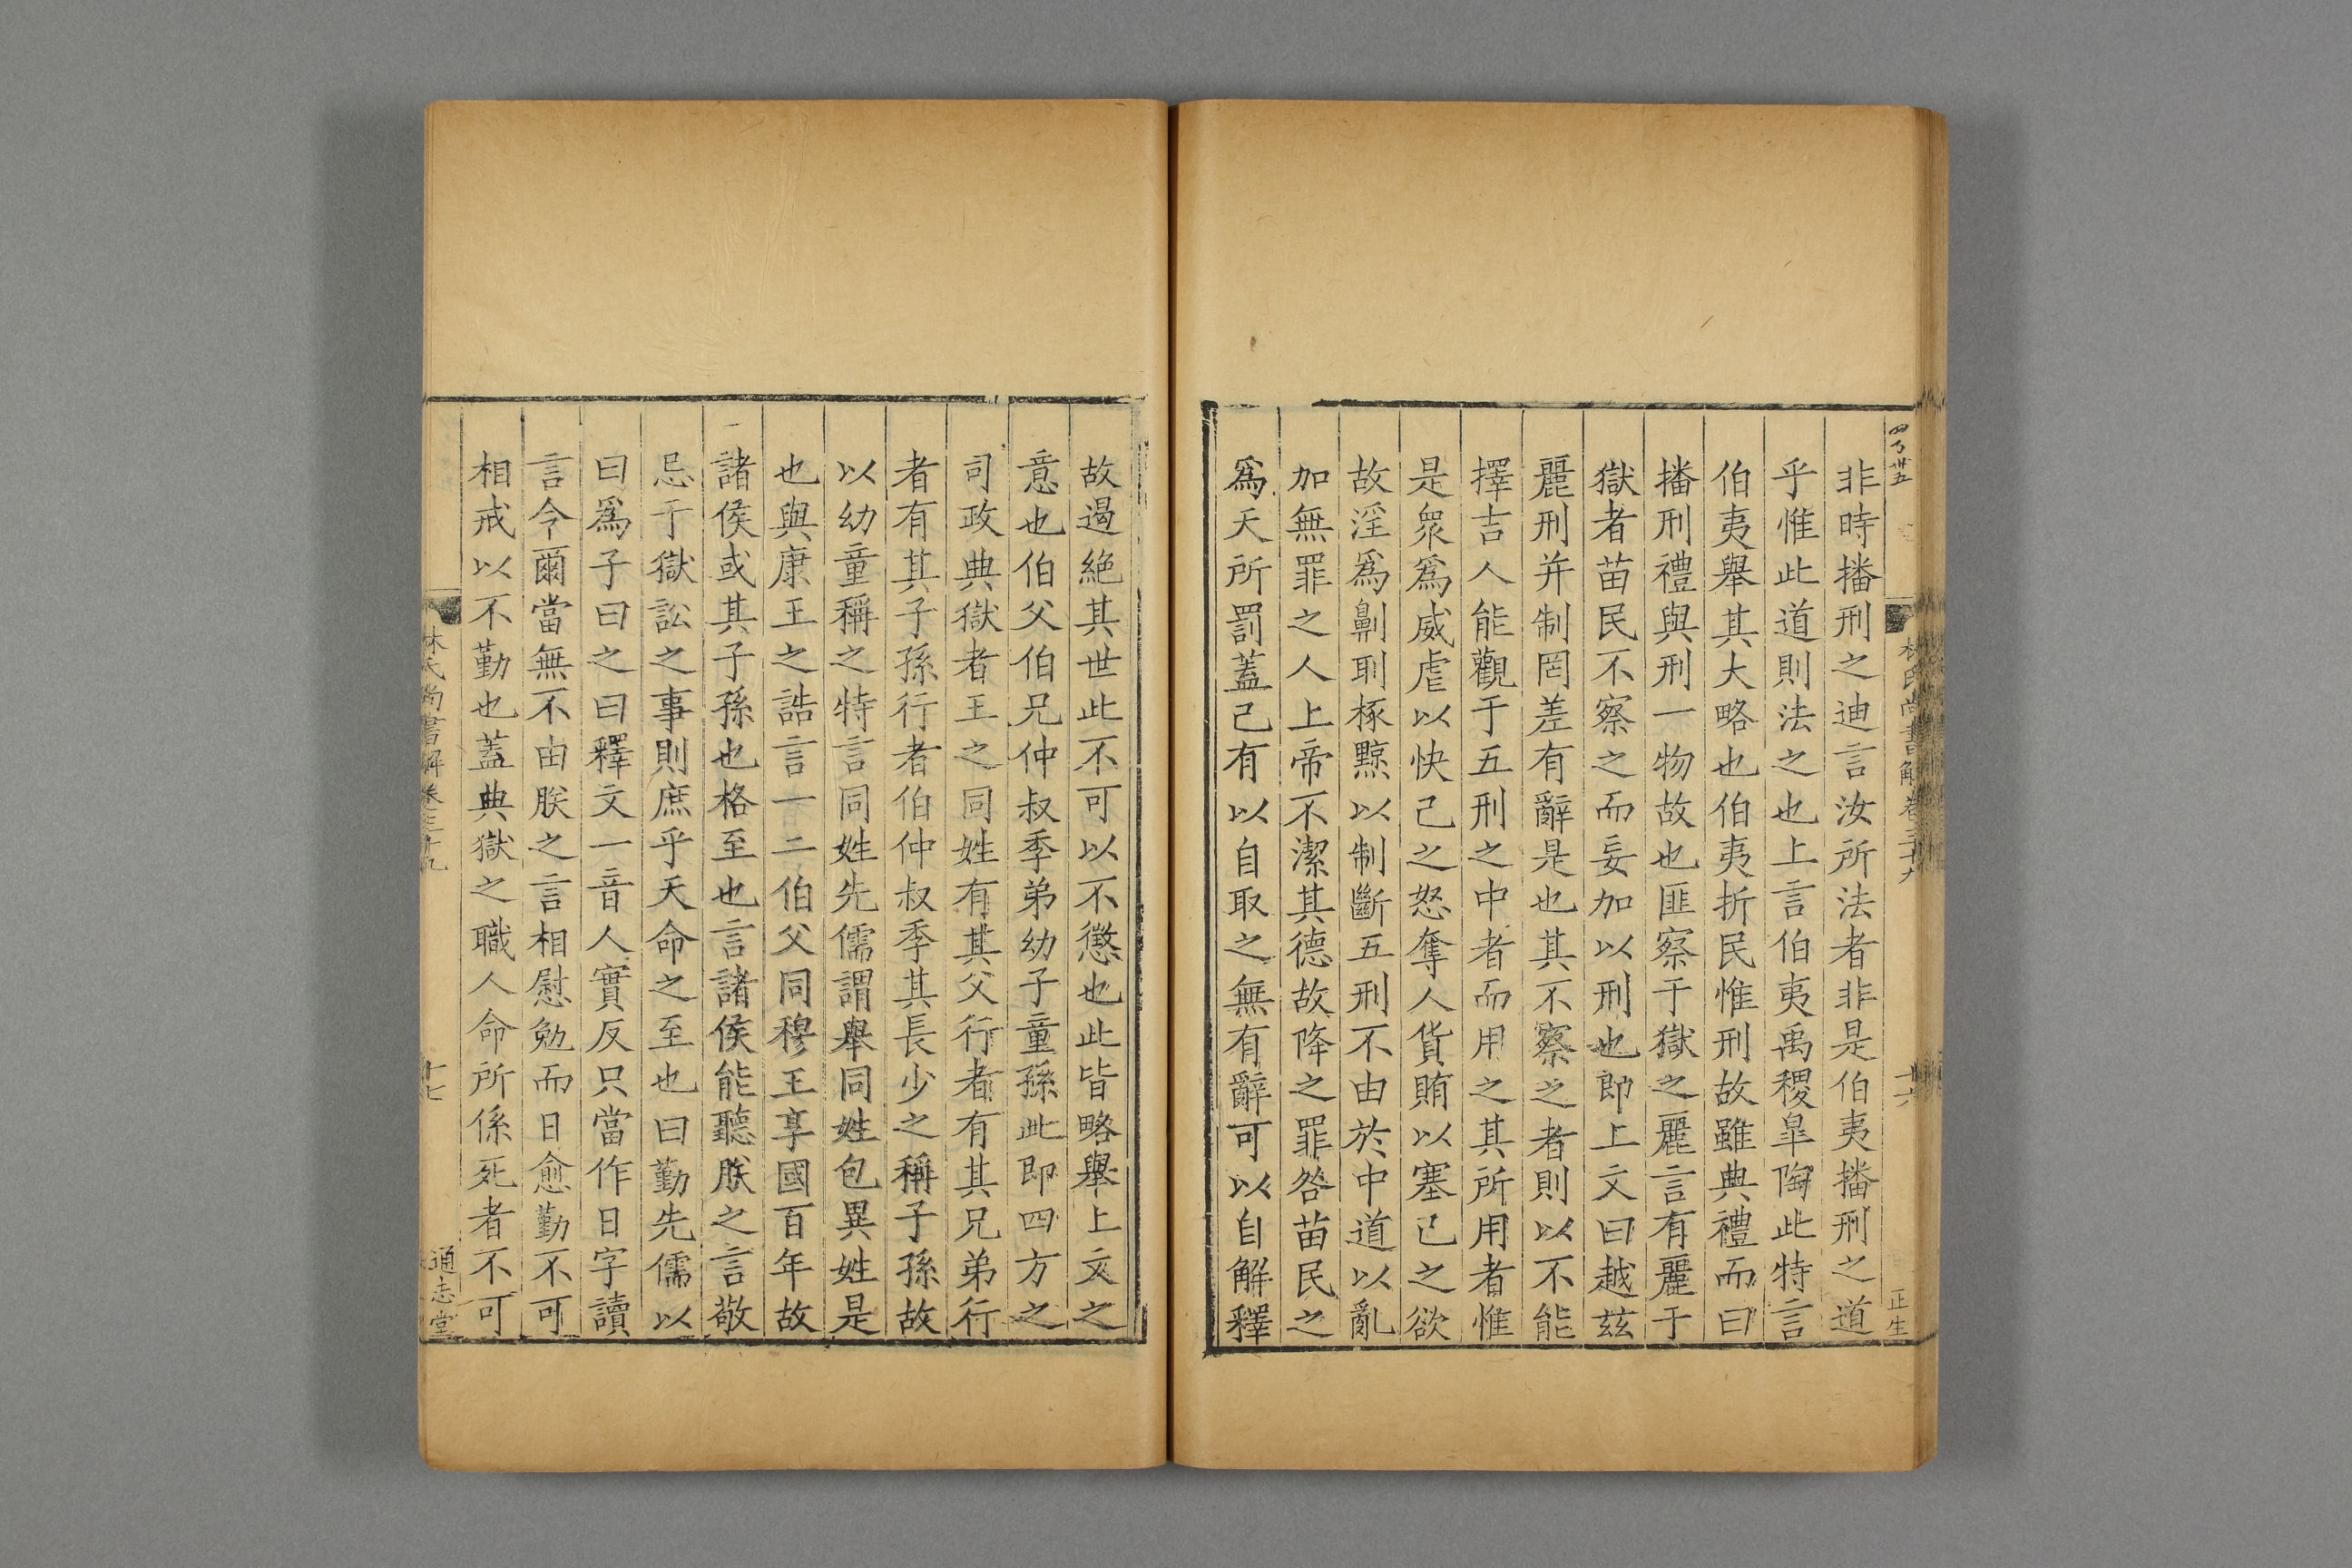 四百卅五
林氏尚書解卷三十九
十六
正生
非時播刑之迪言汝所法者非是伯夷播刑之道
乎惟此道則法之也上言伯夷禹稷臯陶此特言
伯夷舉其大略也伯夷折民惟刑故雖典禮而曰
播刑禮與刑一物故也匪察于獄之麗言有麗于
獄者苗民不察之而妄加以刑也即上文曰越茲
麗刑并制罔差有辭是也其不察之者則以不能
擇吉人能觀于五刑之中者而用之其所用者惟
是衆爲威虐以快己之怒奪人貨賄以塞己之欲
故淫爲劓刵椓黥以制斷五刑不由於中道以亂
加無罪之人上帝不潔其德故降之罪咎苗民之
爲天所罰蓋己有以自取之無有辭可以自解釋
故遏絕其世此不可以不懲也此皆略舉上文之
意也伯父伯兄仲叔季弟幼子童孫此即四方之
司政典獄者王之同姓有其父行者有其兄弟行
者有其子孫行者伯仲叔季其長少之稱子孫故
以幼童稱之特言同姓先儒謂舉同姓包異姓是
也與康王之誥言一二伯父同穆王享國百年故
諸侯或其子孫也格至也言諸侯能聽朕之言敬
忌于獄訟之事則庶乎天命之至也曰勤先儒以
曰爲子曰之曰釋文一音人實反只當作日字讀
言今爾當無不由朕之言相慰勉而日愈勤不可
相戒以不勤也蓋典獄之職人命所係死者不可
林氏尚書解卷三十九
十七
通志堂